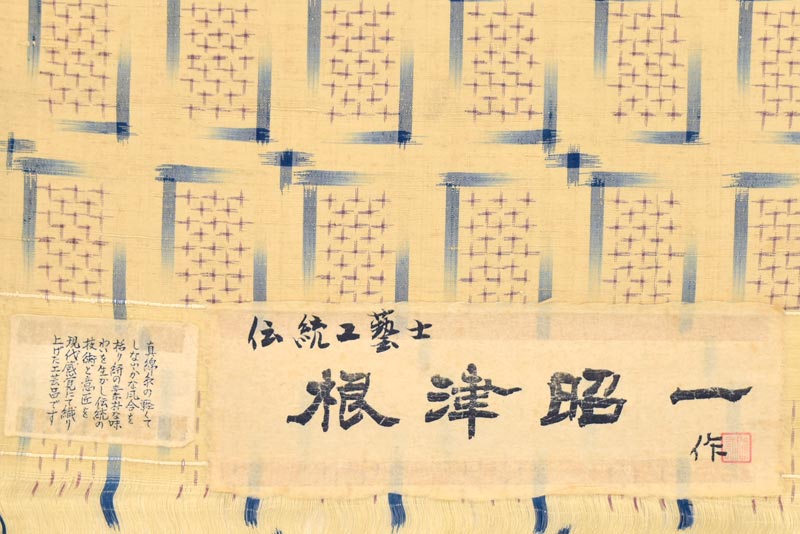 伝統工藝士
根津昭一
作
真綿糸の軽くて
しなやかな風合を
括り絣の素朴な味
わいを生かし伝統の
技術と意匠を
現代感覚にて織り
上げた工芸品です